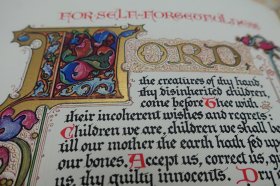 FOR SELF-FORGETFULNESS
LORD,
the creatures of thy hand,
thy disinherited children,
come before Thee with
their incoherent wishes and regrets:
Children we are, children we shall
till our mother the earth hath fed
our bones. Accept us, correct us,
us, thy guilty innocents. D